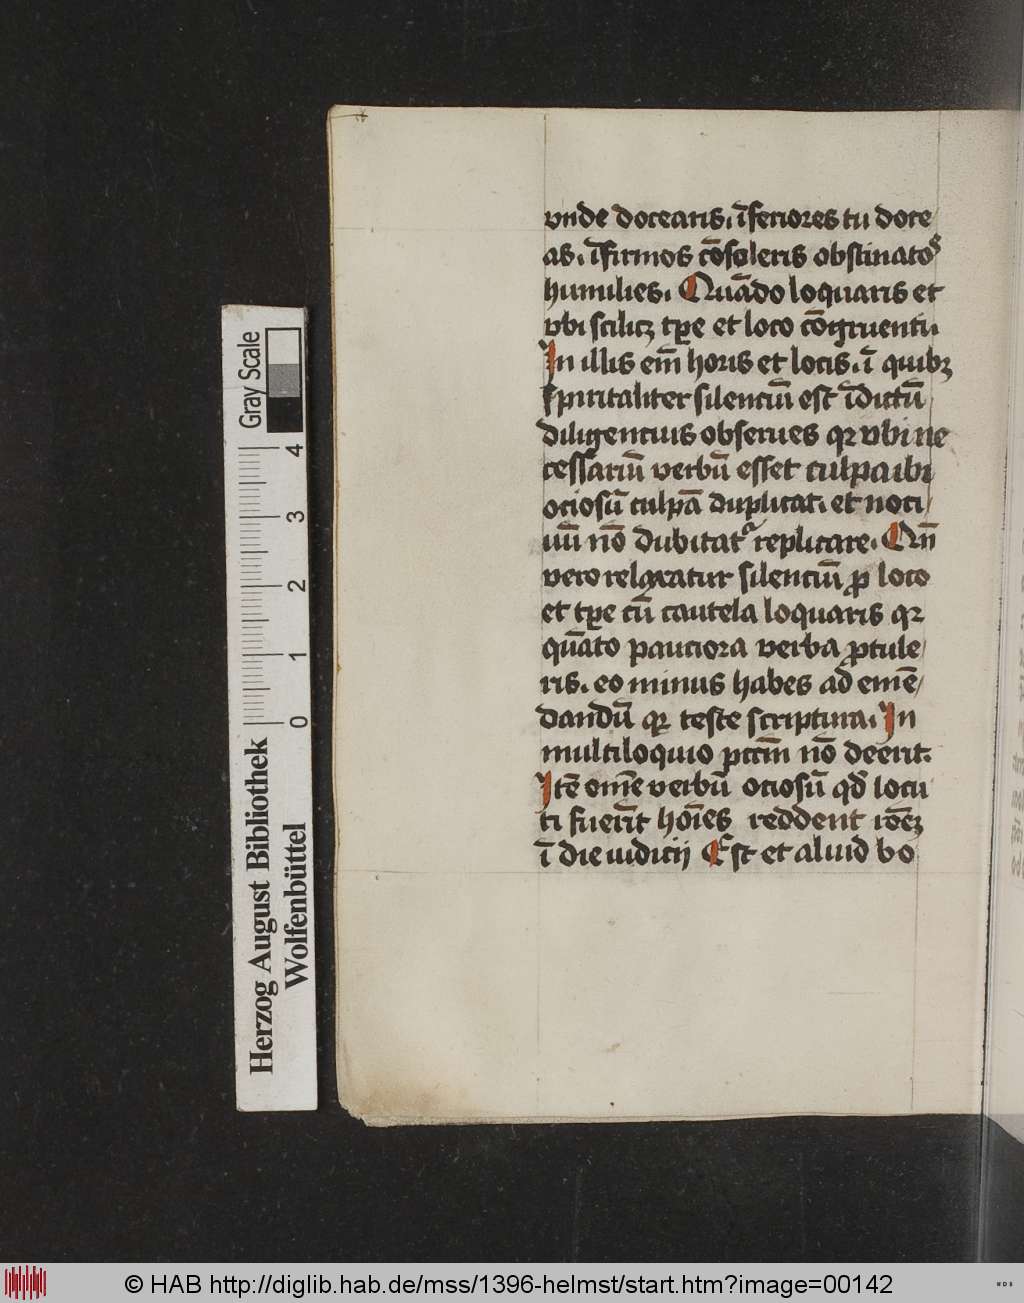 vnde docearis. īferiores tu doce
as. īfirmos cōsoleris obstinatos
humilies. Quādo loquaris et
vbi scilicꝫ tꝑe et loco cōgruenti.
In illis em̄ horis et locis. ī quibꝫ
spiritaliter silenciū est īdictū
diligencius obserues qꝛ vbi ne
cessariū verbū esset culpa ibi
ociosū culpā duplicat. et noci
uū nō dubitatᷣ replicare. Qn̄
vero relaxatur silenciū ꝓ loco
et tꝑe cū cautela loquaris qꝛ
quāto pauciora verba ꝓtule
ris. eo minus habes ad emē
dandū qꝛ teste scriptura. In
multiloquio pccm̄ nō deerit.
Itē om̄e verbū ociosū qd̄ locu
ti fuerīt hoīes reddent roēꝫ
ī die iudicij Est et aliud bo
Herzog August Bibliothek
Wolfenbüttel
0 1 2 3 4
Gray Scale
© HAB http://diglib.hab.de/mss/1396-helmst/start.htm?image=00142